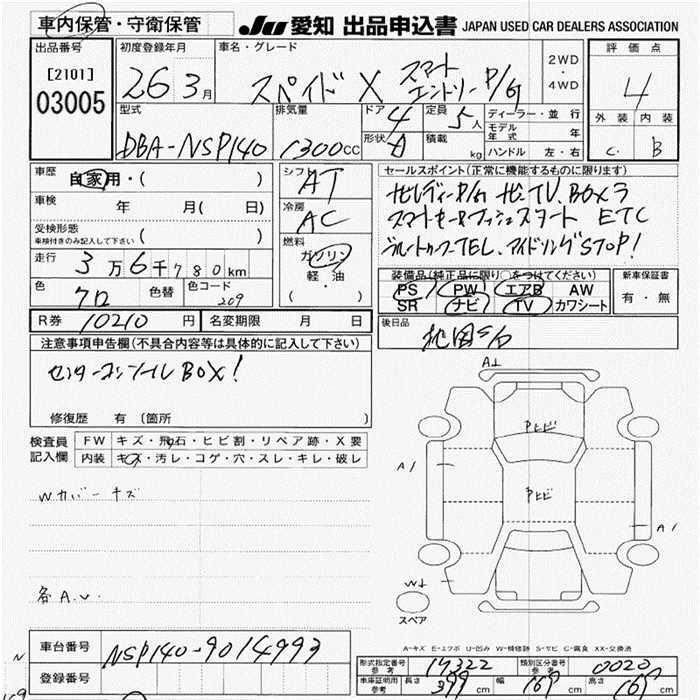 車内保管・守衛保管 JU 愛知 出品申込書 JAPAN USED CAR DEALERS ASSOCIATION
出品番号 初度登録年月 車名・グレード 評価点
[2101] 26 3月 スペイド X スマートエントリーP/G 2WD・4WD 4
03005
型式 排気量 ドア 4 定員 5人 ディーラー・並行 外装 内装
DBA-NSP140 1300CC 形状 積載 kg モデル年式 年 C B
ハンドル 左・右
車歴 自家用・( ) シフト AT セールスポイント(正常に機能するものに限ります)
車検 年 月( 日) 冷房 AC
受検形態 ( ) スマートキー&プッシュスタート ETC
車検付きのみ記入して下さい
燃料 ガソリン・軽・油・( ) ブルートゥースTEL、アイドリングSTOP!
走行 3万6千780km
色 クロ 色替 色コード 209
装備品(純正品に限り○をつけてください) 新車保証書
PS PW エアB AW 有・無
SR ナビ TV カワシート
R券 10210円 名変期限 月 日 後日品
注意事項申告欄(不具合内容等は具体的に記入して下さい)
センターコンソールBOX!
修復歴 有 (箇所
検査員記入欄 FW キズ・飛石・ヒビ割・リペア跡・X要
内装 キズ・汚レ・コゲ・穴・スレ・キレ・破レ
Wカバーキズ
各A.U.
A1
A1
W1
スペア
A-キズ E-エクボ U-凹み W-補修跡 S-サビ C-腐食 XX-交換済
車台番号 NSP140-9014993
登録番号
型式指定番号 参考 17322 類別区分番号 参考 0020
車庫証明用 参考 長さ 399cm 幅 169cm 高さ 169cm